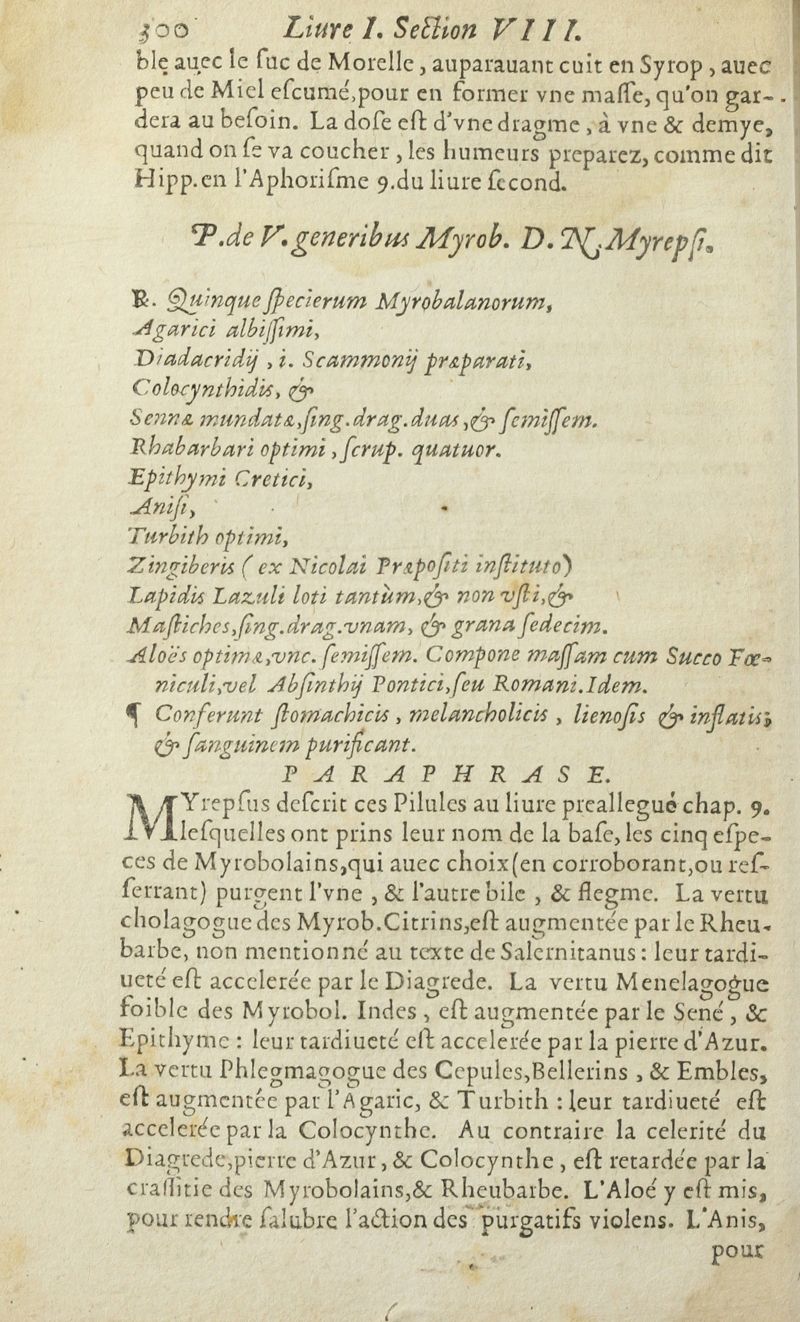 300 Liure I. Section VIII.
ble auec le suc de Morelle, auparauant cuit en Syrop, auec
peu de Miel escumé,pour en former vne masse, qu'on gar-
dera au besoin. La dose est d'vne dragme, à vne & demye,
quand on se va coucher, les humeurs preparez, comme dit
Hipp.en l'Aphorisme 9.du liure second.
P.de V.generibus Myrob. D. N. Myrepsi.
℞. Quinque specierum Myrobalanorum,
Agarici albissimi,
Diadacridij , i. Scammonij præparati,
Colocynthidis, &
Sennæ mundatæ,sing.drag.duas,& semissem.
Rhabarbari optimi, scrup. quatuor.
Epithymi Cretici,
Anisi,
Turbith optimi,
Zingiberis ( ex Nicolai Præpositi instituto)
Lapidis Lazuli loti tantùm,& non vsti,&
Mastiches,sing.drag.vnam, & grana sedecim.
Aloës optimæ,vnc. semissem. Compone massam cum Succo Fœ-
niculi,vel Absinthij Pontici,seu Romani.Idem.
¶ Conferunt stomachicis, melancholicis, lienosis & inflatis;
& sanguinem purificant.
PARAPHRASE.
MYrepsus descrit ces Pilules au liure preallegué chap. 9.
lesquelles ont prins leur nom de la base, les cinq espe-
ces de Myrobolains,qui auec choix(en corroborant,ou res-
serrant) purgent l'vne , & l'autre bile , & flegme. La vertu
cholagogue des Myrob.Citrins,est augmentée par le Rheu-
barbe, non mentionné au texte de Salernitanus: leur tardi-
ueté est accelerée par le Diagrede. La vertu Menelagogue
foible des Myrobol. Indes , est augmentée par le Sené, &
Epithyme : leur tardiueté est accelerée par la pierre d'Azur.
La vertu Phlegmagogue des Cepules,Bellerins , & Embles,
est augmentée par l'Agaric, & Turbith : leur tardiueté est
accelerée par la Colocynthe. Au contraire la celerité du
Diagrede,pierre d'Azur, & Colocynthe, est retardée par la
crassitie des Myrobolains,& Rheubarbe. L'Aloé y est mis,
pour rendre salubre l'action des purgatifs violens. L'Anis,
pour